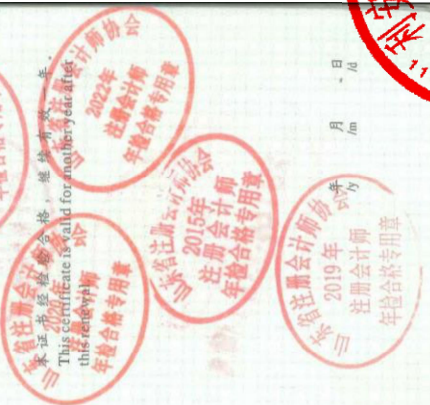 本证书经检验合格，继续有效一年。
This certificate is valid for another year after
this renewal.
年 月 日
/y /m /d
山东省注册会计师协会
2022年
注册会计师
年检合格专用章
山东省注册会计师协会
注册会计师
年检合格专用章
山东省注册会计师协会
2015年
注册会计师
年检合格专用章
山东省注册会计师协会
2019年
注册会计师
年检合格专用章
年检合格专用章